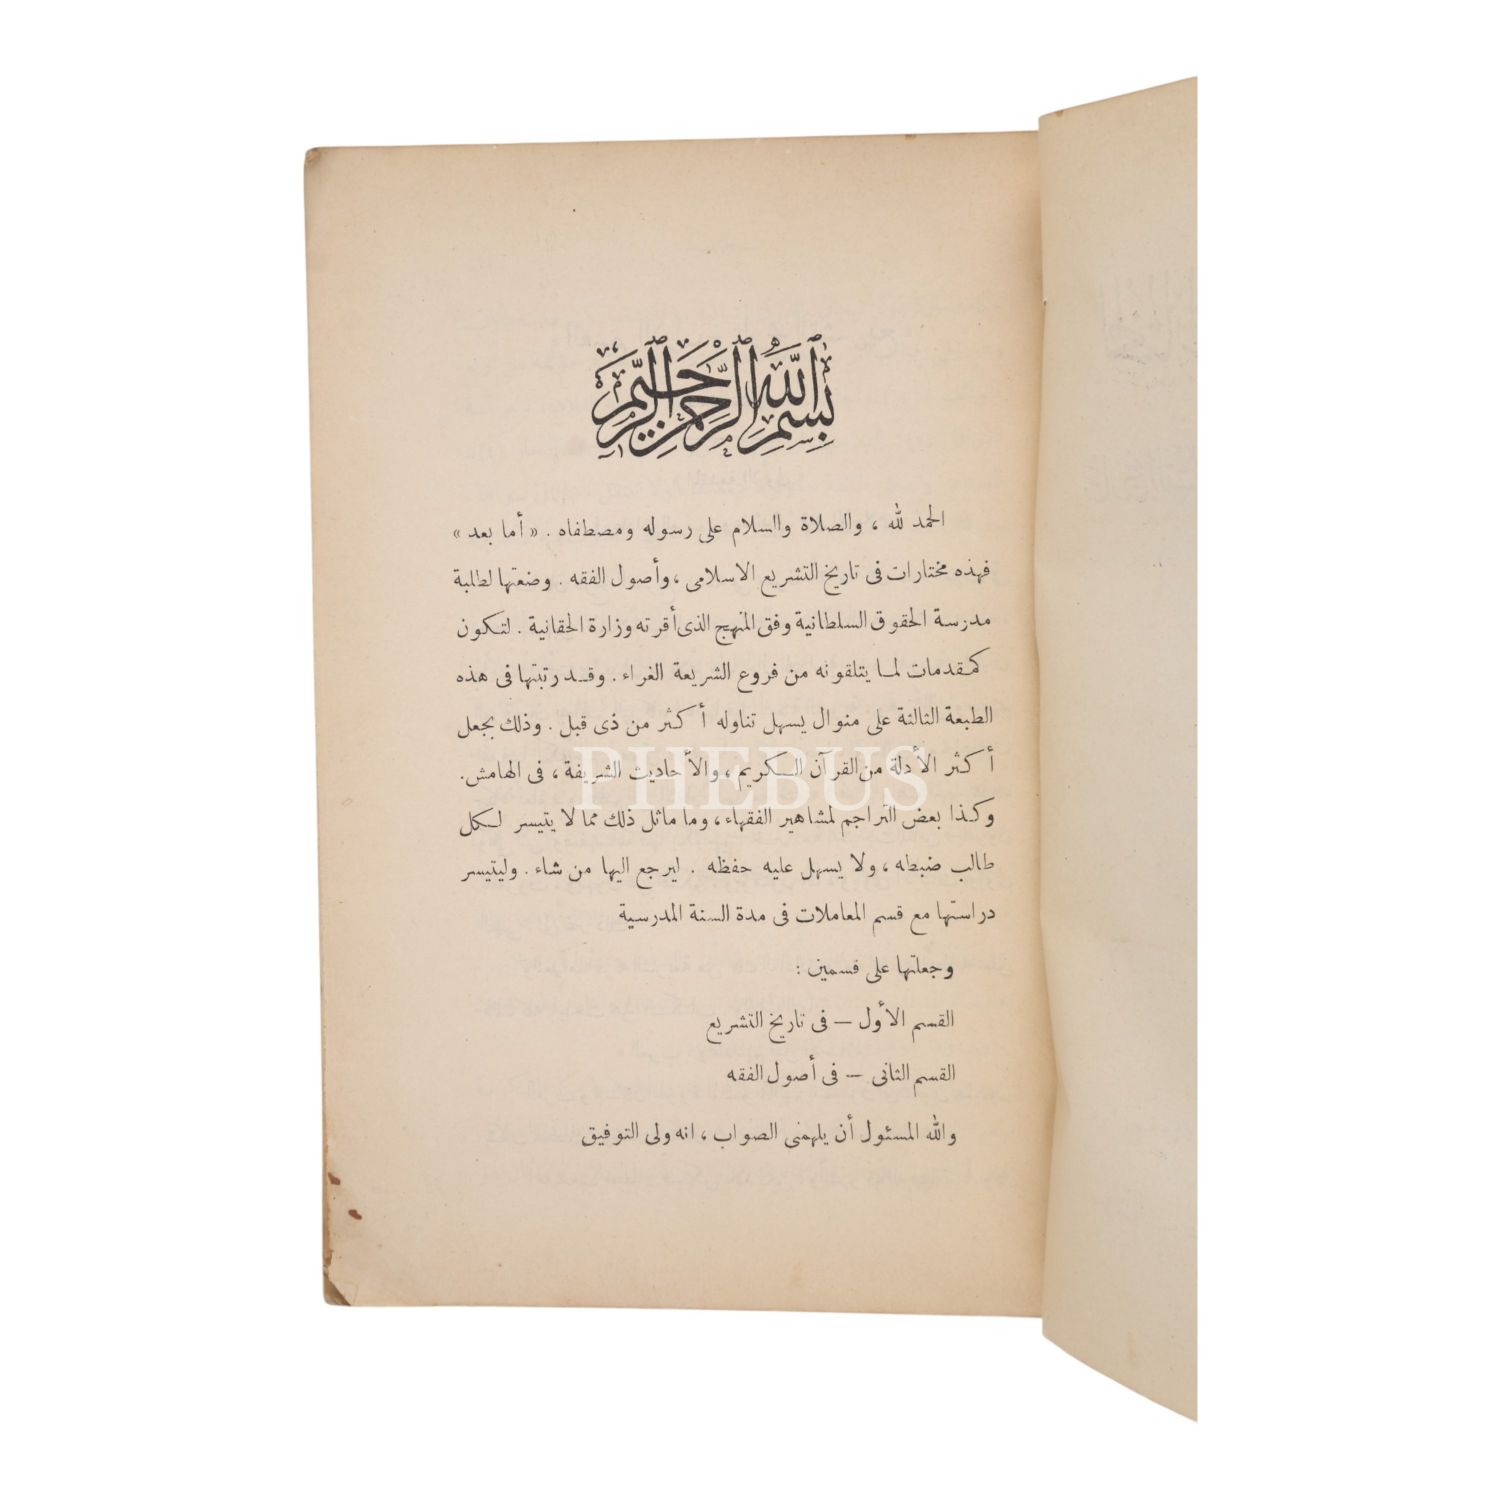 بسم الله الرحمن الرحيم
الحمد لله ، والصلاة والسلام على رسوله ومصطفاه . « أما بعد »
فهذه مختارات فى تاريخ التشريع الاسلامى ، وأصول الفقه . وضعتها لطلبة
مدرسة الحقوق السلطانية وفق المنهج الذى أقرته وزارة الحقانية . لتكون
كمقدمات لما يتلقونه من فروع الشريعة الغراء . وقد رتبتها فى هذه
الطبعة الثالثة على منوال يسهل تناوله أكثر من ذى قبل . وذلك بجعل
أكثر الأدلة من القرآن الكريم ، والأحاديث الشريفة ، فى الهامش .
PHEBUS
وكذا بعض التراجم لمشاهير الفقهاء ، وما ماثل ذلك مما لا يتيسر لكل
طالب ضبطه ، ولا يسهل عليه حفظه . ليرجع اليها من شاء . وليتيسر
دراستها مع قسم المعاملات فى مدة السنة المدرسية
وجعلتها على قسمين :
القسم الأول — فى تاريخ التشريع
القسم الثانى — فى أصول الفقه
والله المسئول أن يلهمنى الصواب ، انه ولى التوفيق